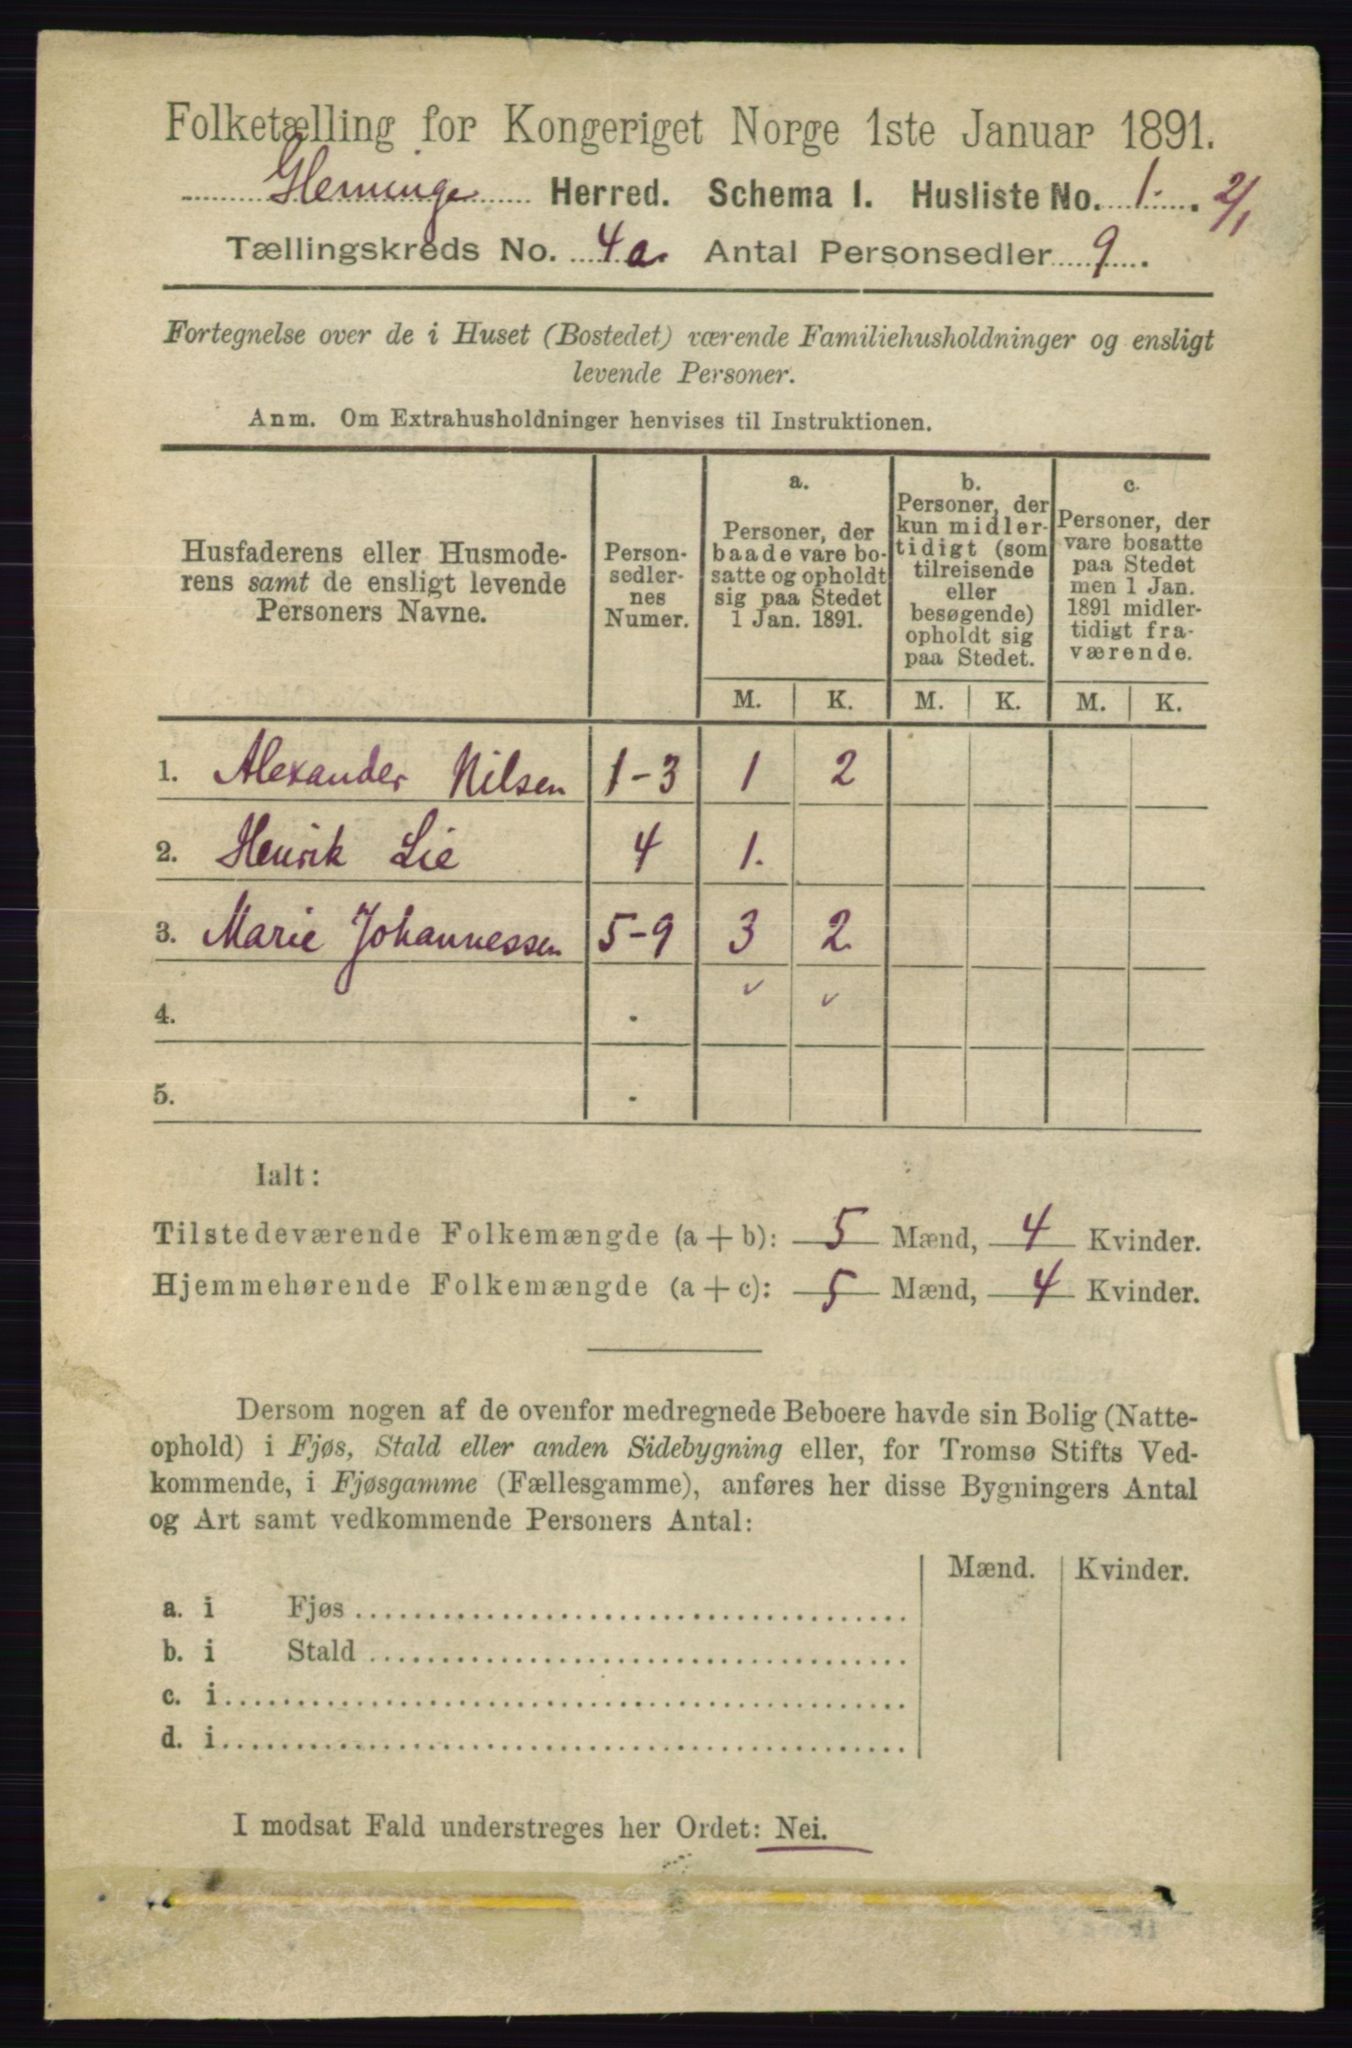 Folketælling for Kongeriget Norge 1ste Januar 1891.
Glemminge Herred. Schema I. Husliste No. 1. 2/1
Tællingskreds No. 4a. Antal Personsedler 9.
Fortegnelse over de i Huset (Bostedet) værende Familiehusholdninger og ensligt
levende Personer.
Anm. Om Extrahusholdninger henvises til Instruktionen.
Husfaderens eller Husmode-
rens samt de ensligt levende
Personers Navne.
Person-
sedler-
nes
Numer.
a.
Personer, der
baade vare bo-
satte og opholdt
sig paa Stedet
1 Jan. 1891.
b.
Personer, der
kun midler-
tidigt (som
tilreisende
eller
besøgende)
opholdt sig
paa Stedet.
c.
Personer, der
vare bosatte
paa Stedet
men 1 Jan.
1891 midler-
tidigt fra-
værende.
M. K. M. K. M. K.
1. Alexander Nilsen 1-3 1 2
2. Henrik Lie 4 1.
3. Marie Johannessen 5-9 3 2
4. .
5. .
Ialt:
Tilstedeværende Folkemængde (a + b): 5 Mænd, 4 Kvinder.
Hjemmehørende Folkemængde (a + c): 5 Mænd, 4 Kvinder.
Dersom nogen af de ovenfor medregnede Beboere havde sin Bolig (Natte-
ophold) i Fjøs, Stald eller anden Sidebygning eller, for Tromsø Stifts Ved-
kommende, i Fjøsgamme (Fællesgamme), anføres her disse Bygningers Antal
og Art samt vedkommende Personers Antal:
Mænd. Kvinder.
a. i Fjøs
b. i Stald
c. i
d. i
I modsat Fald understreges her Ordet: Nei.